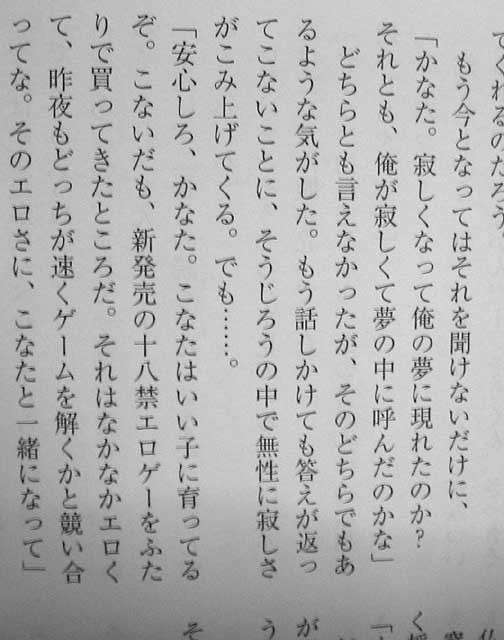 てくれるのだろう
もう今となってはそれを聞けないだけに、
「かなた。寂しくなって俺の夢に現れたのか?
それとも、俺が寂しくて夢の中に呼んだのかな」
どちらとも言えなかったが、そのどちらでもあ
るような気がした。もう話しかけても答えが返っ
てこないことに、そうじろうの中で無性に寂しさ
がこみ上げてくる。でも……。
「安心しろ、かなた。こなたはいい子に育ってる
ぞ。こないだも、新発売の十八禁エロゲーをふた
りで買ってきたところだ。それはなかなかエロく
て、昨夜もどっちが速くゲームを解くかと競い合
ってな。そのエロさに、こなたと一緒になって」
く
「
が
う
そ